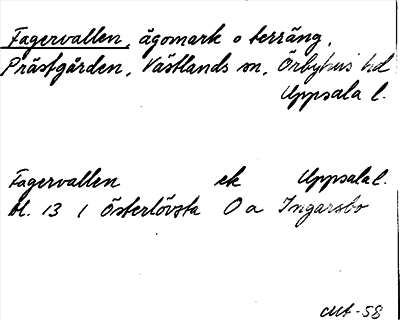 Fagervallen, ägomark o terräng,
Prästgården, Västlands sn, Örbyhus hd
Uppsala l.
Fagervallen ek Uppsala l.
bl. 13 1 Österlövsta O a Ingarsbo
-58